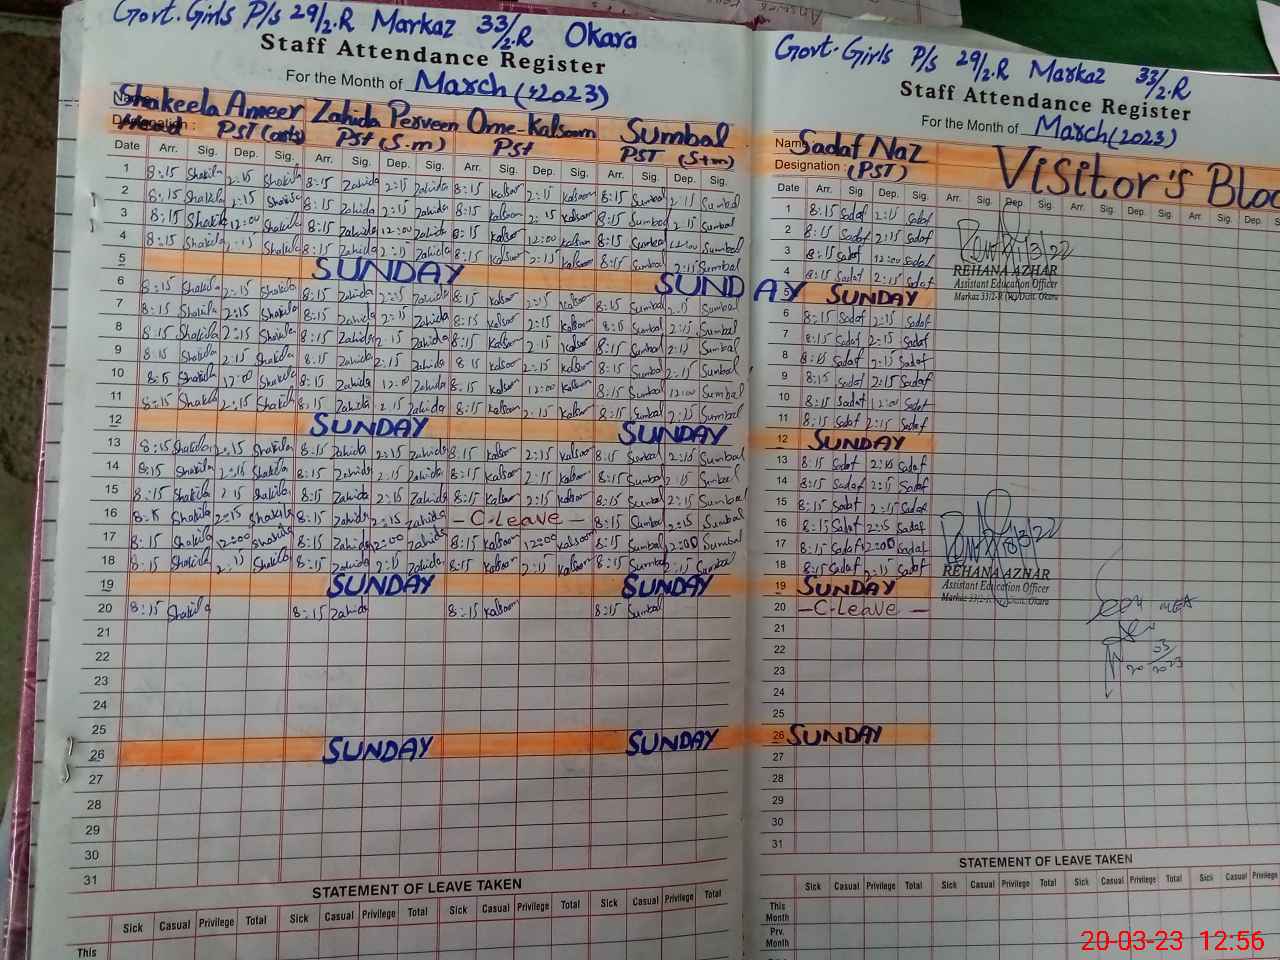 Govt. Girls P/s 29/2.R Markaz 33/2.R Okara
Staff Attendance Register
For the Month of March (2023)
Name
Shakeela Ameer Zahida Perveen Ome-Kalsoom Sumbal
Designation :
Head PST (arts) PSt (S.m) PSt PST (S+m)
Date Arr. Sig. Dep. Sig. Arr. Sig. Dep. Sig. Arr. Sig. Dep. Sig. Arr. Sig. Dep. Sig.
1 8:15 Shakila 2:15 Shakila 8:15 Zahida 2:15 Zahida 8:15 Kalsoom 2:15 Kalsoom 8:15 Sumbal 2:15 Sumbal
2 8:15 Shakila 2:15 Shakila 8:15 Zahida 2:15 Zahida 8:15 Kalsoom 2:15 Kalsoom 8:15 Sumbal 2:15 Sumbal
3 8:15 Shakila 12:00 Shakila 8:15 Zahida 12:00 Zahida 8:15 Kalsoom 12:00 Kalsoom 8:15 Sumbal 12:00 Sumbal
4 8:15 Shakila 2:15 Shakila 8:15 Zahida 2:15 Zahida 8:15 Kalsoom 2:15 Kalsoom 8:15 Sumbal 2:15 Sumbal
5 SUNDAY SUNDAY
6 8:15 Shakila 2:15 Shakila 8:15 Zahida 2:15 Zahida 8:15 Kalsoom 2:15 Kalsoom 8:15 Sumbal 2:15 Sumbal
7 8:15 Shakila 2:15 Shakila 8:15 Zahida 2:15 Zahida 8:15 Kalsoom 2:15 Kalsoom 8:15 Sumbal 2:15 Sumbal
8 8:15 Shakila 2:15 Shakila 8:15 Zahida 2:15 Zahida 8:15 Kalsoom 2:15 Kalsoom 8:15 Sumbal 2:15 Sumbal
9 8:15 Shakila 2:15 Shakila 8:15 Zahida 2:15 Zahida 8:15 Kalsoom 2:15 Kalsoom 8:15 Sumbal 2:15 Sumbal
10 8:15 Shakila 12:00 Shakila 8:15 Zahida 12:00 Zahida 8:15 Kalsoom 12:00 Kalsoom 8:15 Sumbal 12:00 Sumbal
11 8:15 Shakila 2:15 Shakila 8:15 Zahida 2:15 Zahida 8:15 Kalsoom 2:15 Kalsoom 8:15 Sumbal 2:15 Sumbal
12 SUNDAY SUNDAY
13 8:15 Shakila 2:15 Shakila 8:15 Zahida 2:15 Zahida 8:15 Kalsoom 2:15 Kalsoom 8:15 Sumbal 2:15 Sumbal
14 8:15 Shakila 2:15 Shakila 8:15 Zahida 2:15 Zahida 8:15 Kalsoom 2:15 Kalsoom 8:15 Sumbal 2:15 Sumbal
15 8:15 Shakila 2:15 Shakila 8:15 Zahida 2:15 Zahida 8:15 Kalsoom 2:15 Kalsoom 8:15 Sumbal 2:15 Sumbal
16 8:15 Shakila 2:15 Shakila 8:15 Zahida 2:15 Zahida - C-Leave - 8:15 Sumbal 2:15 Sumbal
17 8:15 Shakila 12:00 Shakila 8:15 Zahida 12:00 Zahida 8:15 Kalsoom 12:00 Kalsoom 8:15 Sumbal 12:00 Sumbal
18 8:15 Shakila 2:15 Shakila 8:15 Zahida 2:15 Zahida 8:15 Kalsoom 2:15 Kalsoom 8:15 Sumbal 2:15 Sumbal
19 SUNDAY SUNDAY
20 8:15 Shakila 8:15 Zahida 8:15 Kalsoom 8:15 Sumbal
21
22
23
24
25
26 SUNDAY SUNDAY
27
28
29
30
31
STATEMENT OF LEAVE TAKEN
Sick Casual Privilege Total Sick Casual Privilege Total Sick Casual Privilege Total Sick Casual Privilege Total
This
Govt. Girls P/s 29/2.R Markaz 33/2.R
Staff Attendance Register
For the Month of March(2023)
Name Sadaf Naz
Designation : (PST)
Visitor's Bloc
Date Arr. Sig. Dep. Sig. Arr. Sig. Dep Sig. Arr. Sig. Dep. Sig. Arr Sig. Dep.
1 8:15 Sadaf 2:15 Sadaf
2 8:15 Sadaf 2:15 Sadaf
3 8:15 Sadaf 12:00 Sadaf
4 8:15 Sadaf 2:15 Sadaf
REHANA AZHAR
Assistant Education Officer
Markaz 33/2-R (W) Distt. Okara
5 SUNDAY
6 8:15 Sadaf 2:15 Sadaf
7 8:15 Sadaf 2:15 Sadaf
8 8:15 Sadaf 2:15 Sadaf
9 8:15 Sadaf 2:15 Sadaf
10 8:15 Sadaf 12:00 Sadaf
11 8:15 Sadaf 2:15 Sadaf
12 SUNDAY
13 8:15 Sadaf 2:15 Sadaf
14 8:15 Sadaf 2:15 Sadaf
15 8:15 Sadaf 2:15 Sadaf
16 8:15 Sadaf 2:15 Sadaf
17 8:15 Sadaf 12:00 Sadaf
18 8:15 Sadaf 2:15 Sadaf
REHANA AZHAR
Assistant Education Officer
19 SUNDAY
20 - C-Leave -
Seen MEA
20 03 2023
21
22
23
24
25
26 SUNDAY
27
28
29
30
31
STATEMENT OF LEAVE TAKEN
Sick Casual Privilege Total Sick Casual Privilege Total Sick Casual Privilege Total Sick Casual Privilege
This Month
Prv. Month
20-03-23 12:56